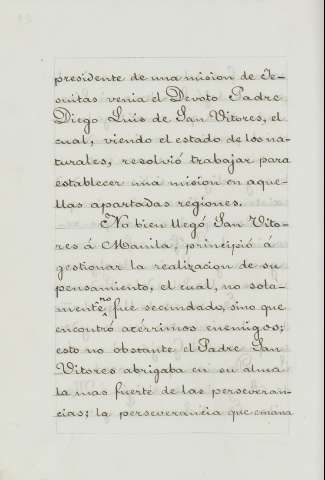 presidente de una mision de Je-
suitas venia el Devoto Padre
Diego Luis de San Vitores, el
cual, viendo el estado de los na-
turales, resolvió trabajar para
establecer una mision en aque-
llas apartadas regiones.
No bien llegó San Vito-
res á Manila, principió á
gestionar la realizacion de su
pensamiento, el cual, no sola-
mente no fue secundado, sino que
encontró acérrimos enemigos;
esto no obstante el Padre San
Vitores abrigaba en su alma
la mas fuerte de las perseveran-
cias; la perseverancia que emana